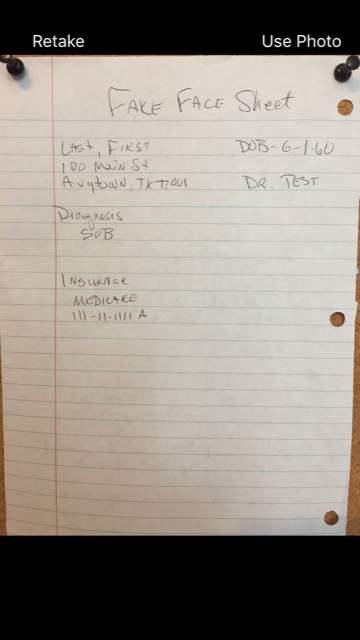 Retake Use Photo
FAKE FACE Sheet
LAST, FIRST DOB- 6-1-60
100 Main St
Anytown, TX 77001 DR. TEST
Diagnosis
SOB
INSURNCE
MEDICARE
111-11-1111 A